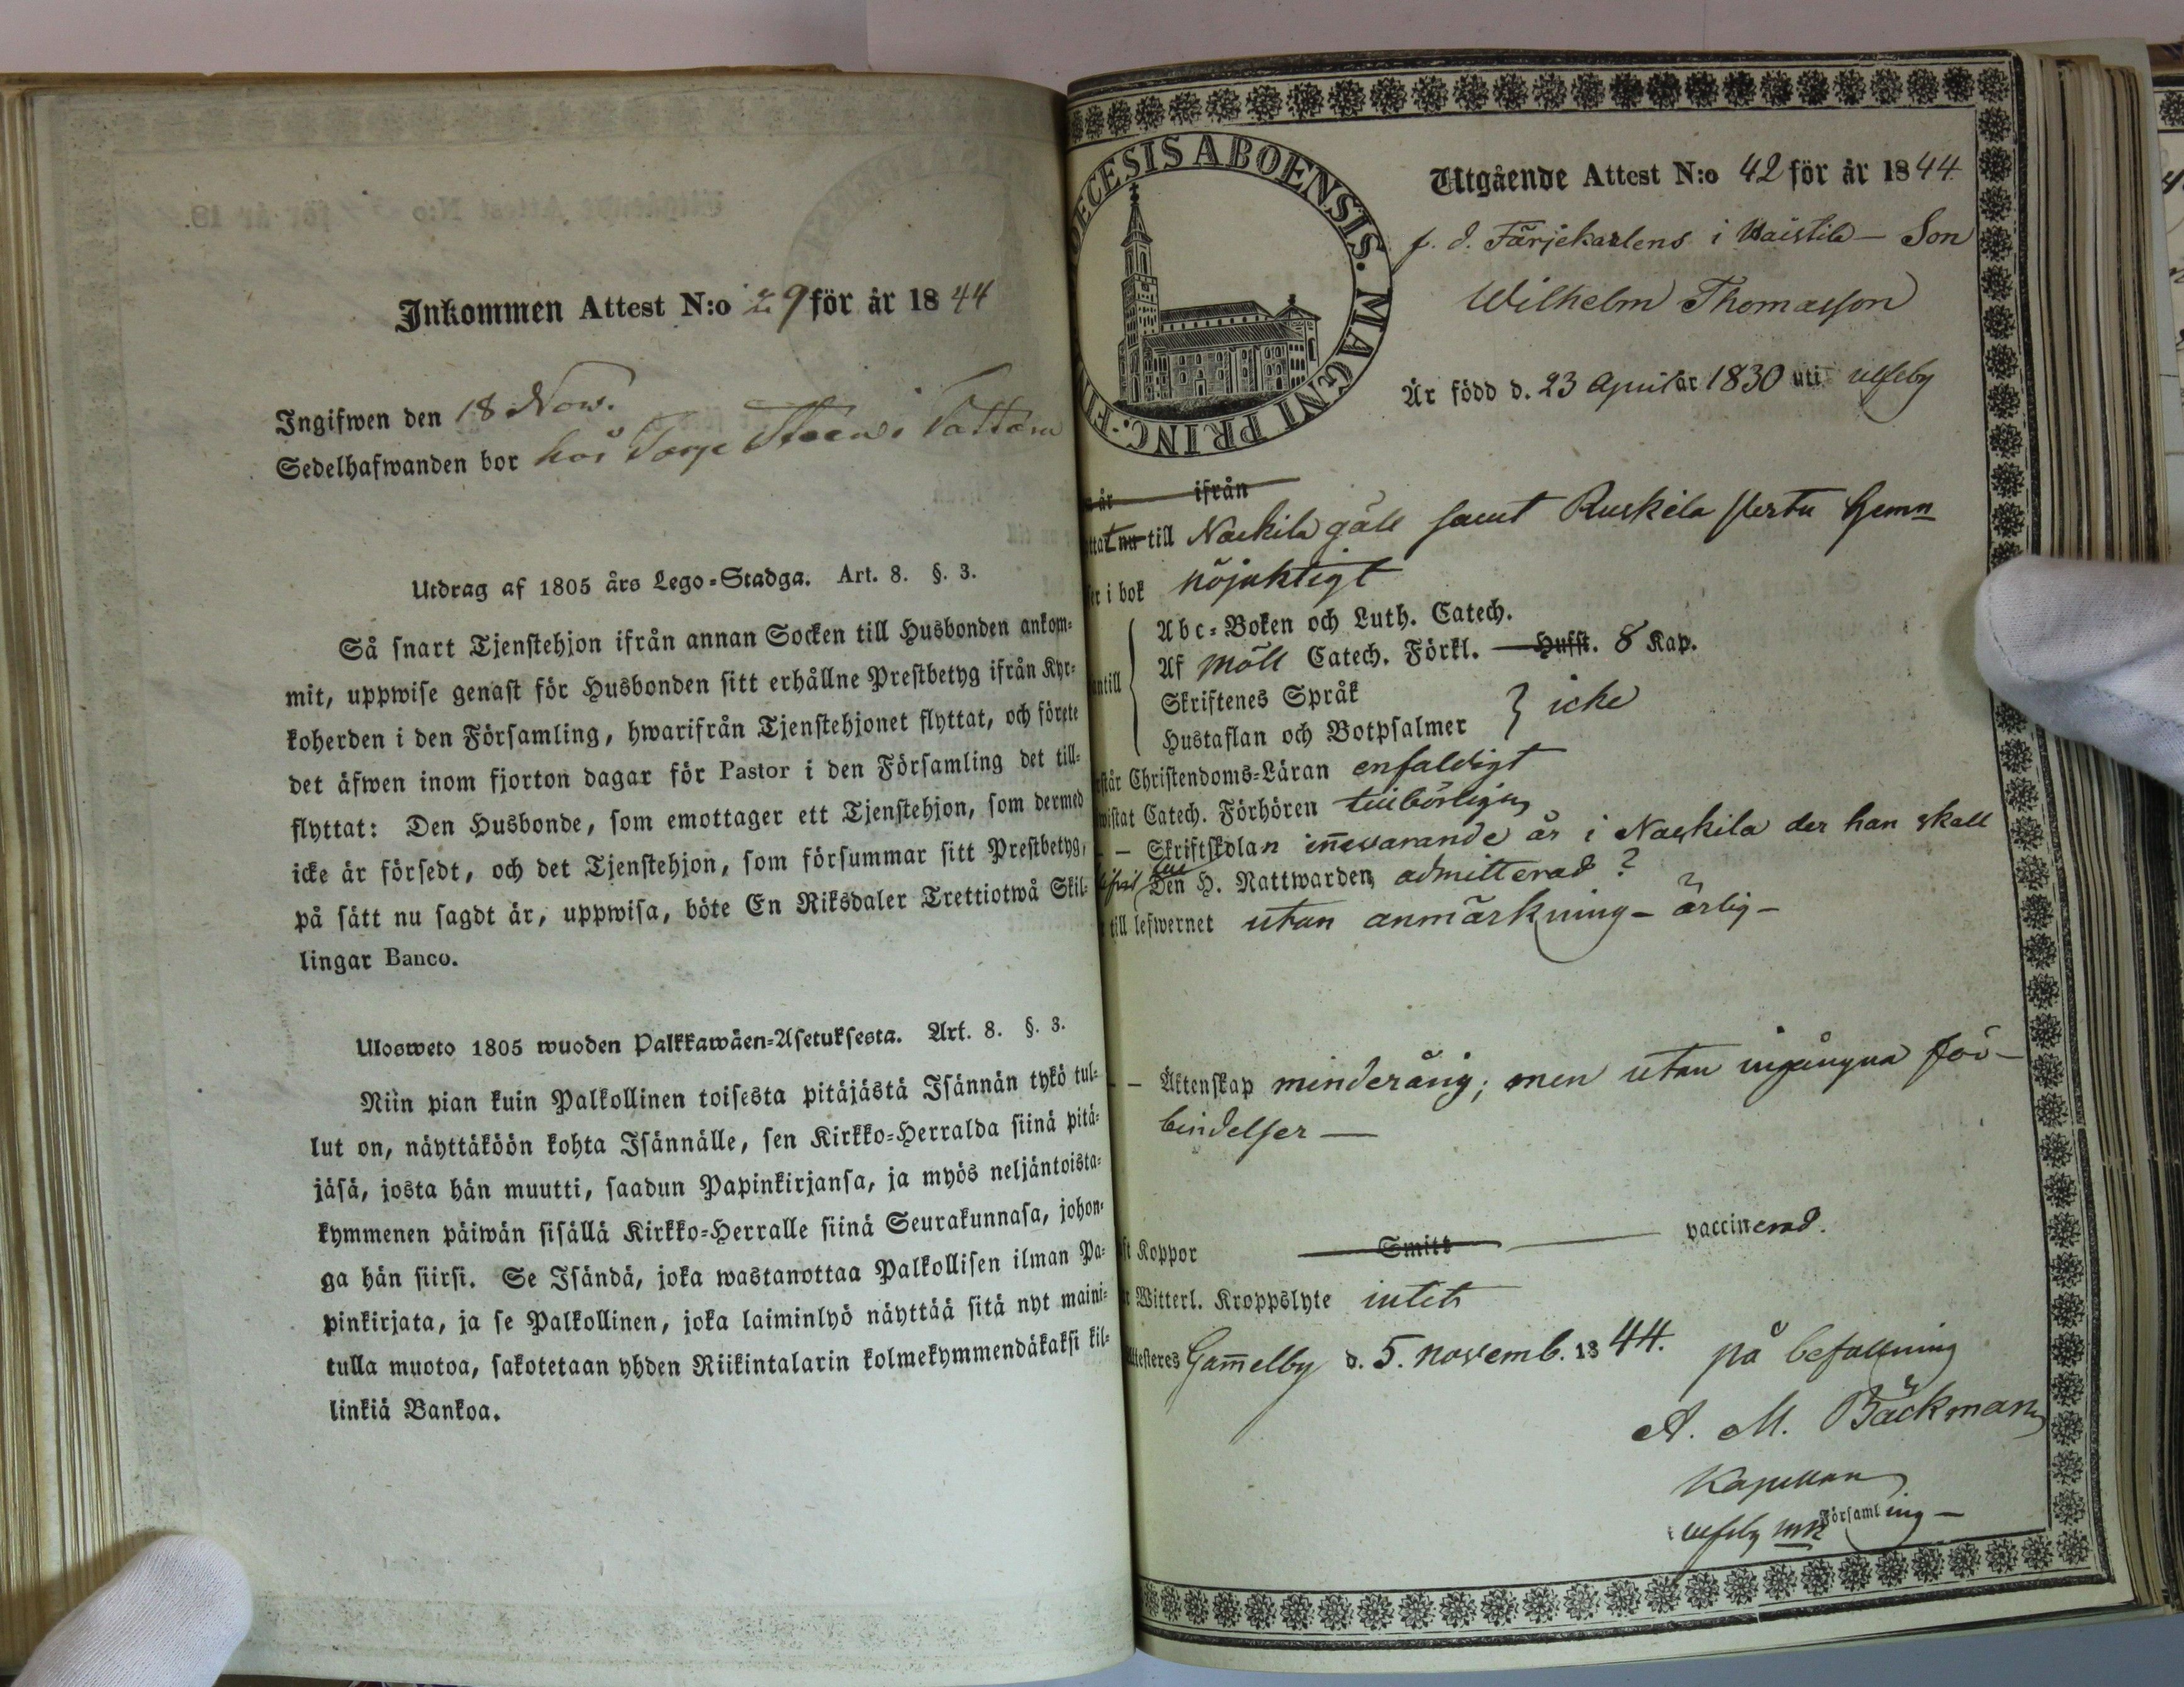 Inkommen Attest N:o 29 för år 1844
Ingifwen den 18 Nov.
Sedelhafwanden bor hos i
Utdrag af 1805 års Lego-Stadga. Art. 8. §. 3.
Så snart Tjenstehjon ifrån annan Socken till Husbonden ankom-
mit, uppwise genast för Husbonden sitt erhållne Prestbetyg ifrån Kyr-
koherden i den Församling, hwarifrån Tjenstehjonet flyttat, och förete
det äfwen inom fjorton dagar för Pastor i den Församling det till-
flyttat: Den Husbonde, som emottager ett Tjenstehjon, som dermed
icke är försedt, och det Tjenstehjon, som försummar sitt Prestbetyg,
på sätt nu sagdt är, uppwisa, böte En Riksdaler Trettiotwå Skil-
lingar Banco.
Ulosweto 1805 wuoden Palkkawäen-Asetuksesta. Art. 8. §. 3.
Niin pian kuin Palkollinen toisesta pitäjästä Isännän tykö tul-
lut on, näyttäköön kohta Isännälle, sen Kirkko-Herralda siinä pitä-
jäsä, josta hän muutti, saadun Papinkirjansa, ja myös neljäntoista-
kymmenen päiwän sisällä Kirkko-Herralle siinä Seurakunnasa, johon-
ga hän siirsi. Se Isändä, joka wastanottaa Palkollisen ilman Pa-
pinkirjata, ja se Palkollinen, joka laiminlyö näyttää sitä nyt maini-
tulla muotoa, sakotetaan yhden Riikintalarin kolmekymmendäkaksi kil-
linkiä Bankoa.
OECESIS ABOENSIS. MAGNI PRINC. FI
Utgående Attest N:o 42 för år 1844
f. d. Färjekarlens i Vaistila – Son
Wilhelm Thomasson
Är född d. 23 April år 1830 uti Ulfsby
år ifrån
ttat nu till Nackila gäll samt Ruskila
er i bok nöjaktigt
Abc-Boken och Luth. Catech.
antill Af Möll Catech. Förkl. Hufst. 8 Kap.
Skriftenes Språk
Hustaflan och Botpsalmer } icke
står Christendoms-Läran enfaldigt
wistat Catech. Förhören tillbörligen
– Skriftskolan innevarande år i Nackila der han skall
Den H. Nattwarden admitterad ?
till lefwernet utan anmärkning – ärlig –
– – Äktenskap minderårig; men utan ingångna för-
bindelser —
st Koppor Smitt vaccinerad.
r Witterl. Kroppslyte intet
Attesteres Gammelby d. 5. novemb. 1844. på befallning
A. M. Bäckman
Kapellan
i Ulfsby Församling –